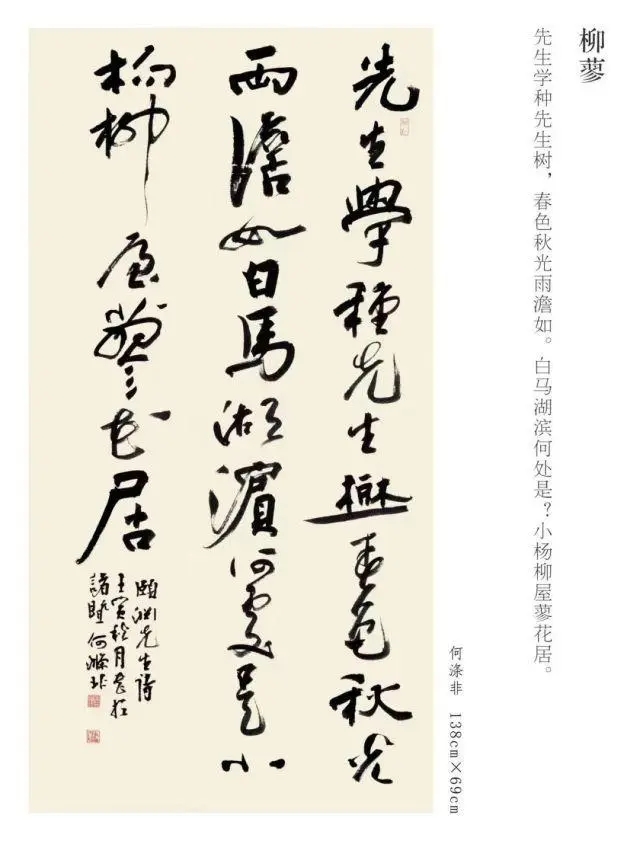 柳蓼
先生学种先生树，春色秋光雨澹如。白马湖滨何处是？小杨柳屋蓼花居。
何涤非 138cm×69cm
先生學種先生樹春色秋光
雨澹如白馬湖濱何處是小
楊柳屋蓼花居
頤淵先生詩
壬寅月
諸暨何滌非